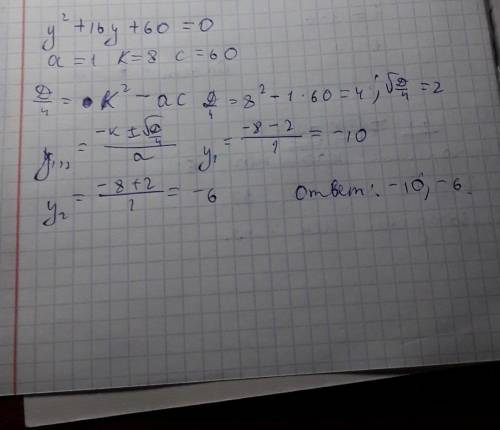 y² + 16y + 60 = 0
a = 1 k = 8 c = 60
D/4 = k² - ac D/4 = 8² - 1·60 = 4; √D/4 = 2
y₁,₂ = (-k ± √D/4)/a y₁ = (-8 - 2)/1 = -10
y₂ = (-8 + 2)/1 = -6 Ответ: -10, -6.